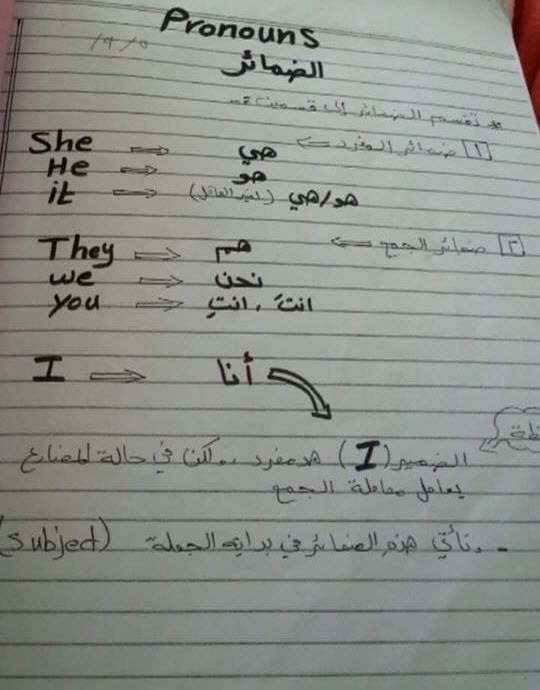 Pronouns
الضمائر
* تقسم الضمائر إلى قسمين :-
[1] ضمائر المفرد ⇐
She ⇒ هي
He ⇒ هو
it ⇒ هو/هي (لغير العاقل)
[2] ضمائر الجمع ⇐
They ⇒ هم
we ⇒ نحن
you ⇒ انتَ ، انتِ
I ⇒ أنا
الضمير (I) هو مفرد ، ولكن في حالة المضارع
يعامل معاملة الجمع
- وتأتي هذه الضمائر في بداية الجملة (Subject)